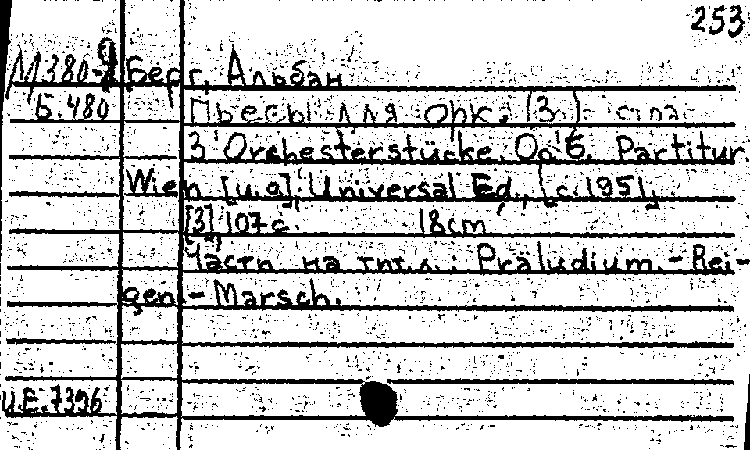 253
М380-9 Берг, Альбан
Б.480 Пьесы для орк. (3)
3 Orchesterstücke. Op. 6. Partitur.
Wien [u.a], Universal Ed., [c.1951].
[3] 107 с. 18cm
Части на тит.л.: Präludium.- Rei-
gen.- Marsch.
U.E.7396